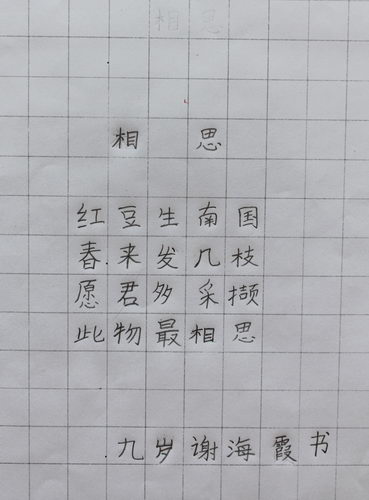 相思
相思
红豆生南国
春来发几枝
愿君多采撷
此物最相思
九岁谢海霞书